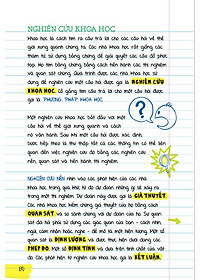 NGHIÊN CỨU KHOA HỌC
Khoa học là cách tìm ra câu trả lời cho các câu hỏi về thế
giới xung quanh chúng ta. Các nhà khoa học rất giống các
thám tử, sử dụng bằng chứng để giải quyết các câu đố phức
tạp. Họ tìm bằng chứng bằng cách tiến hành các thí nghiệm
và quan sát chúng. Quá trình được các nhà khoa học sử
dụng để nghiên cứu một câu hỏi được gọi là NGHIÊN CỨU
KHOA HỌC. Cố gắng tìm câu trả lời cho một câu hỏi được
gọi là PHƯƠNG PHÁP KHOA HỌC
Một nghiên cứu khoa học bắt đầu với một
câu hỏi về thế giới xung quanh và cách
nó vận hành. Sau khi một câu hỏi được xác định,
bước tiếp theo là thu thập tất cả các thông tin có thể liên
quan đến việc nghiên cứu đó bằng cách nghiên cứu
nền, quan sát và tiến hành thí nghiệm.
NGHIÊN CỨU NỀN
nhà
khoa học trong quá khứ
trong một thí nghiệm. Dự đoán này được gọi là GIẢ THUYẾT.
Các nhà khoa học kiểm chứng giả thuyết của họ bằng cách
QUAN SÁT và so sánh chúng với dự đoán của họ. Sự quan
sát đòi hỏi phải sử dụng các giác quan của bạn - cách nhìn,
ngửi, cảm nhận hoặc nghe - để mô tả một hiện tượng. Một số
quan sát là ĐỊNH LƯỢNG và được thực hiện dưới dạng các
PHÉP ĐO. Một số ĐỊNH TÍNH và dựa trên tính chất của vật
đó. Các phát hiện từ nghiên cứu khoa học gọi là KẾT LUẬN.